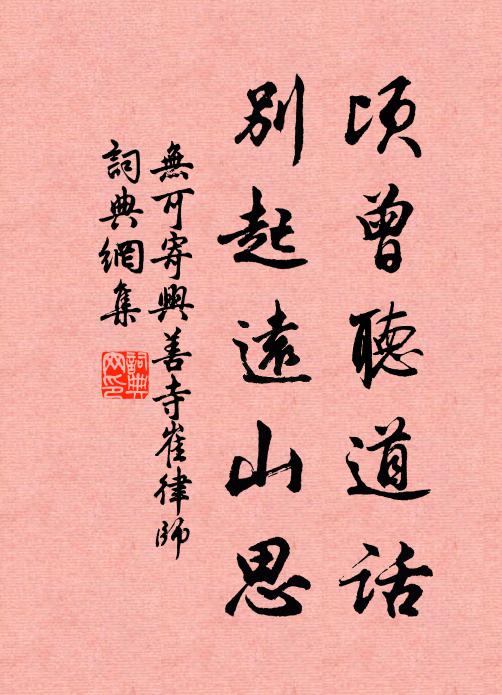 頃曾聽道話
別起遠山思
無可寄興善寺崔律師
詞典網集
詞典
网印